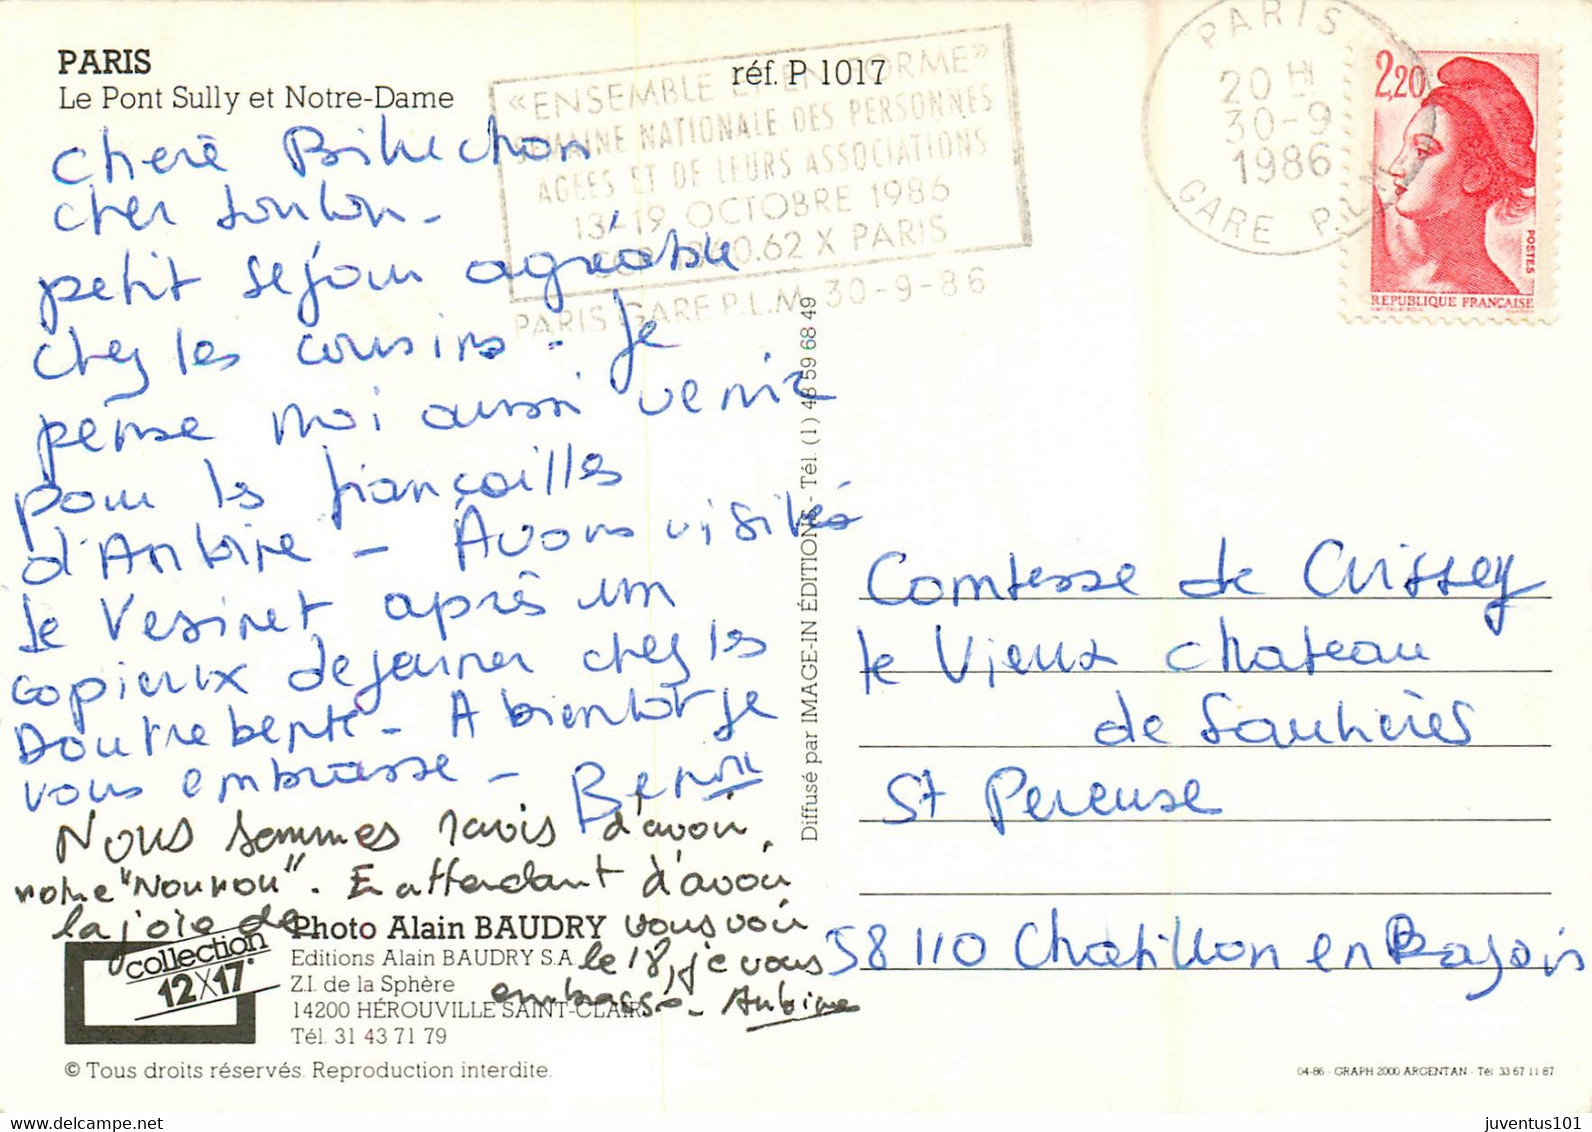 PARIS
Le Pont Sully et Notre-Dame
réf. P 1017
«ENSEMBLE ET EN FORME»
SEMAINE NATIONALE DES PERSONNES
AGEES ET DE LEURS ASSOCIATIONS
13-19 OCTOBRE 1986
62 X PARIS
PARIS GARE P.L.M. 30-9-86
PARIS
20 H
30-9
1986
GARE P.L.M
2,20
POSTES
REPUBLIQUE FRANÇAISE
cher
petit sejour agréable
chez les cousins. Je
pense moi aussi venir
pour les fiançailles
d'Antoine - Avons visités
le Vesinet après un
copieux dejeuner chez les
Doutrebente - A bientot je
vous embrasse - Benoit
Nous sommes ravis d'avoir
notre "Nounou". En attendant d'avoir
la joie de vous voir
le 18, je vous
embrasse - Antoine
Comtesse de Cussey
le Vieux chateau
de Saulieres
St Pereuse
58110 Chatillon en Bazois
Diffusé par IMAGE-IN ÉDITIONS - Tél. (1) 48 59 68 49
collection
12x17
Photo Alain BAUDRY
Editions Alain BAUDRY S.A.
Z.I. de la Sphère
14200 HÉROUVILLE SAINT-CLAIR
Tél. 31 43 71 79
© Tous droits réservés. Reproduction interdite.
04-86 - GRAPH 2000 ARGENTAN - Tél 33 67 11 87
juventus101